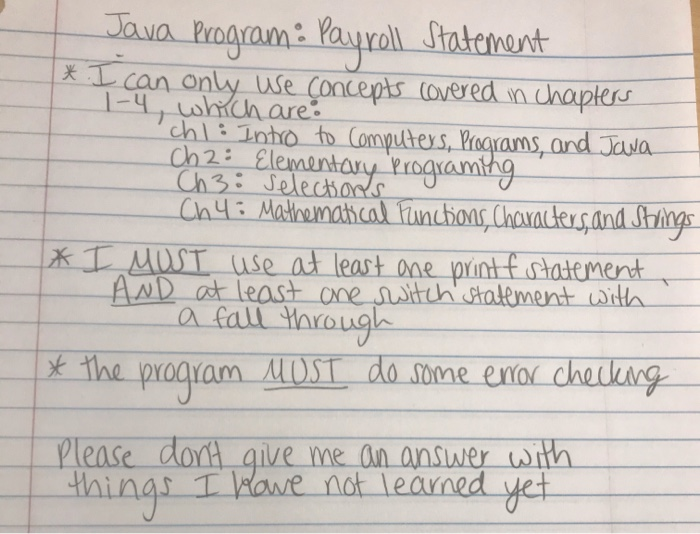 Java Program: Payroll Statement
* I can only use concepts covered in chapters
1-4, which are:
ch1: Intro to Computers, Programs, and Java
Ch2: Elementary Programing
Ch3: Selections
Ch4: Mathematical Functions, Characters, and Strings
* I MUST use at least one printf statement
AND at least one switch statement with
a fall through
* the program MUST do some error checking
Please don't give me an answer with
things I Have not learned yet